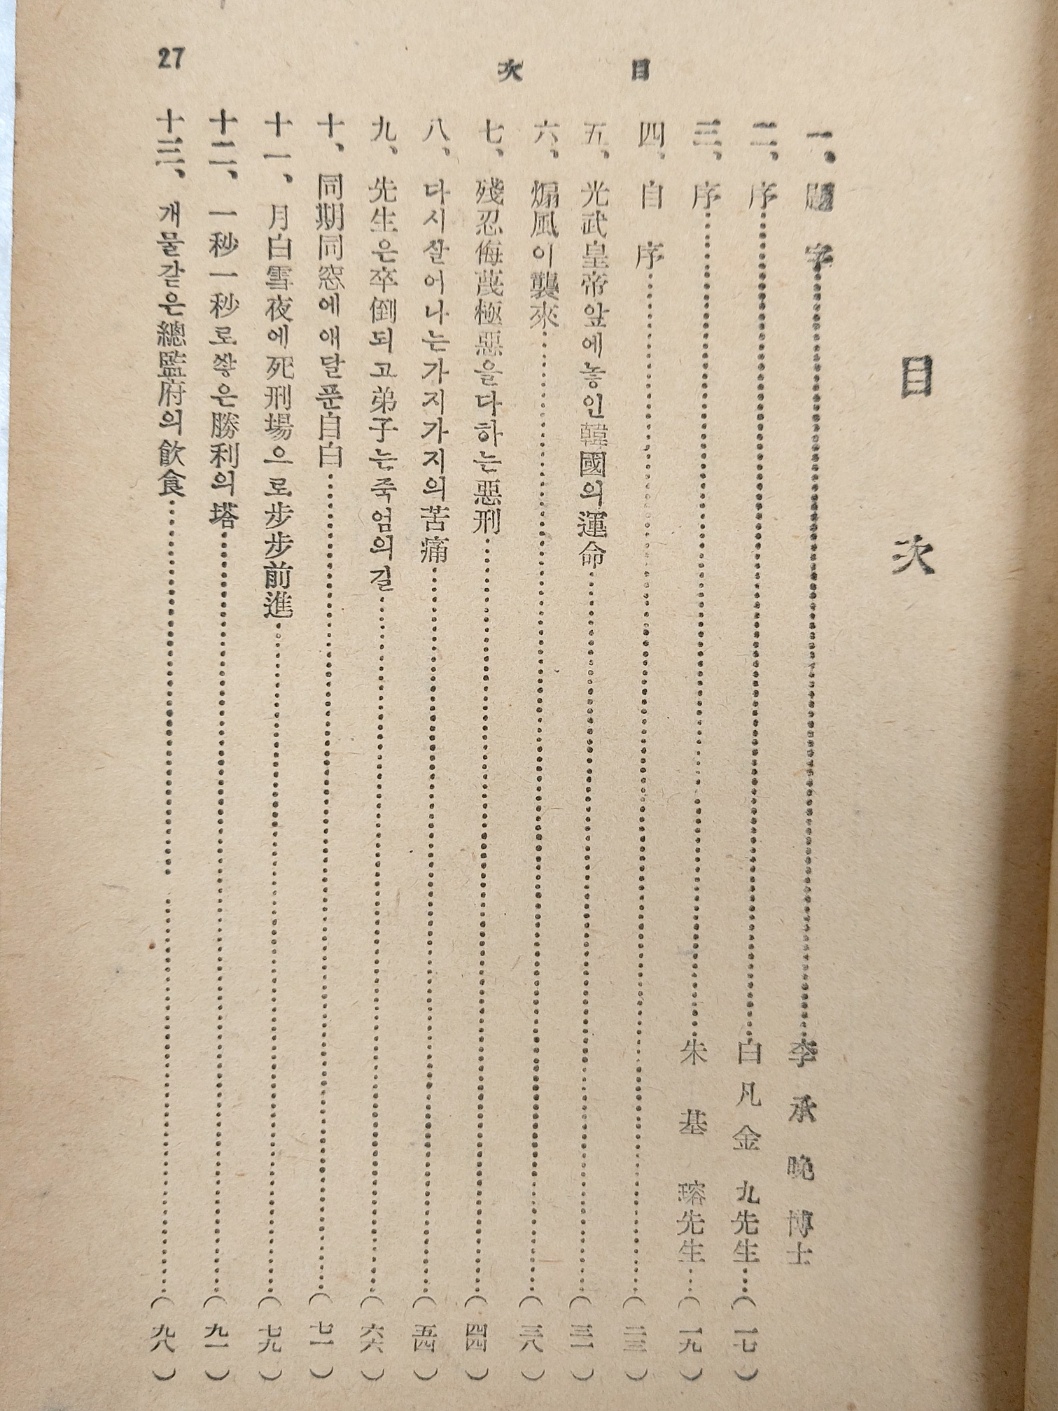 目 次
27
目 次
一、題 字……李承晩博士
二、序……白凡金九先生……(一七)
三、序……朱基瑢先生……(一九)
四、自 序……(二三)
五、光武皇帝앞에놓인韓國의運命……(三一)
六、煽風이襲來……(三八)
七、殘忍侮蔑極惡을다하는惡刑……(四四)
八、다시살어나는가지가지의苦痛……(五四)
九、先生은卒倒되고弟子는죽엄의길……(六六)
十、同期同窓에애달푼自白……(七一)
十一、月白雪夜에死刑場으로步步前進……(七九)
十二、一秒一秒로쌓은勝利의塔……(九一)
十三、개물같은總監府의飮食……(九八)